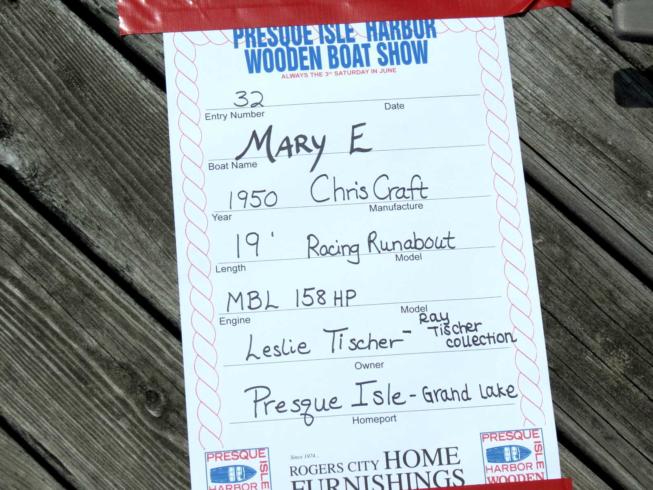 PRESQUE ISLE HARBOR
WOODEN BOAT SHOW
ALWAYS THE 3RD SATURDAY IN JUNE
32
Entry Number Date
MARY E
Boat Name
1950 Chris Craft
Year Manufacture
19' Racing Runabout
Length Model
MBL 158 HP
Engine Model
Leslie Tischer - Ray
Tischer
collection
Owner
Presque Isle - Grand Lake
Homeport
Since 1974...
ROGERS CITY HOME
FURNISHINGS
PRESQUE
ISLE
HARBOR
PRESQUE
ISLE
HARBOR
WOODEN